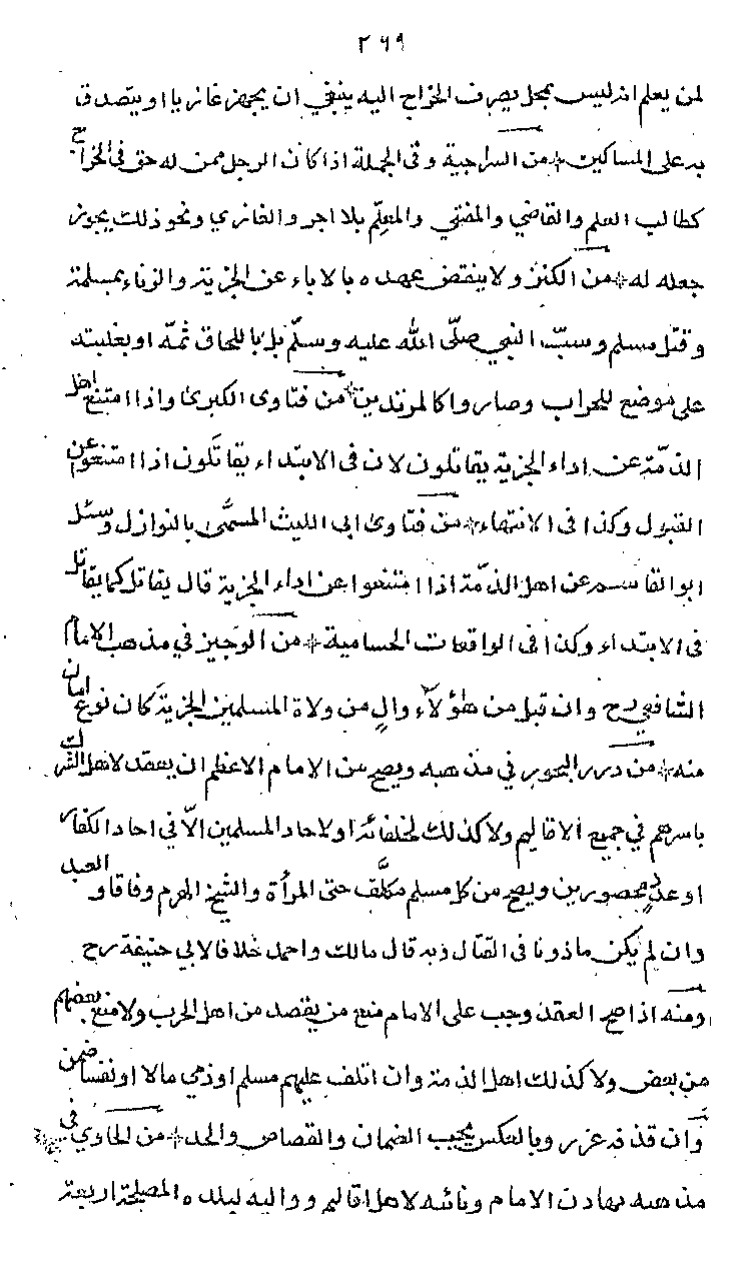 ٢٦٩
لمن يعلم انه ليس بمحل يصرف الخراج اليه ينبغي ان يجهز غازيا او يتصدق
به على المساكين * من السراجية وفى الجملة اذا كان الرجل ممن له حق فى الخراج
كطالب العلم والقاضي والمفتي والمعلّم بلا اجر والغازي ونحو ذلك يجوز
جعله له * من الكنز ولا ينقض عهده بالاباء عن الجزية والزناء بمسلمة
وقتل مسلم وسبّ النبي صلّى الله عليه وسلّم بل باللحاق ثمّه او بغلبته
على موضع للحراب وصاروا كالمرتدين * من فتاوى الكبرى واذا امتنع اهل
الذمّة عن اداء الجزية يقاتلون لان فى الابتداء يقاتلون اذا امتنعوا عن
القبول وكذا فى الانتهاء * من فتاوى ابى الليث المسمّى بالنوازل وسئل
ابو القاسم عن اهل الذمّة اذا امتنعوا عن اداء الجزية قال يقاتل كما يقاتل
فى الابتداء وكذا فى الواقعات الحسامية * من الوجيز في مذهب الامام
الشافعي رح وان قبل من هؤلاء والٍ من ولاة المسلمين الجزية كان نوع امان
منه * من درر البحور في مذهبه ويصح من الامام الاعظم ان يعقد لاهل الشرك
باسرهم في جميع الاقاليم ولا كذلك لخلفائه او لاحاد المسلمين الّا في احاد الكفار
او عددٍ محصورين ويصح من كل مسلم مكلّف حتى المرأة والشيخ الهرم وفاقا والعبد
وان لم يكن ماذونا فى القتال وبه قال مالك واحمد خلافا لابي حنيفة رح
ومنه اذا صح العقد وجب على الامام منع من يقصد من اهل الحرب ولا منع بعضهم
من بعض ولا كذلك اهل الذمة وان اتلف عليهم مسلم او ذمي مالا او نفسا ضمن
وان قذفه عزر وبالعكس يجب الضمان والقصاص والحد * من الحاوي في
مذهبه يهادن الامام ونائبه لاهل اقاليم وواليه لبلده المصلحة اربعة